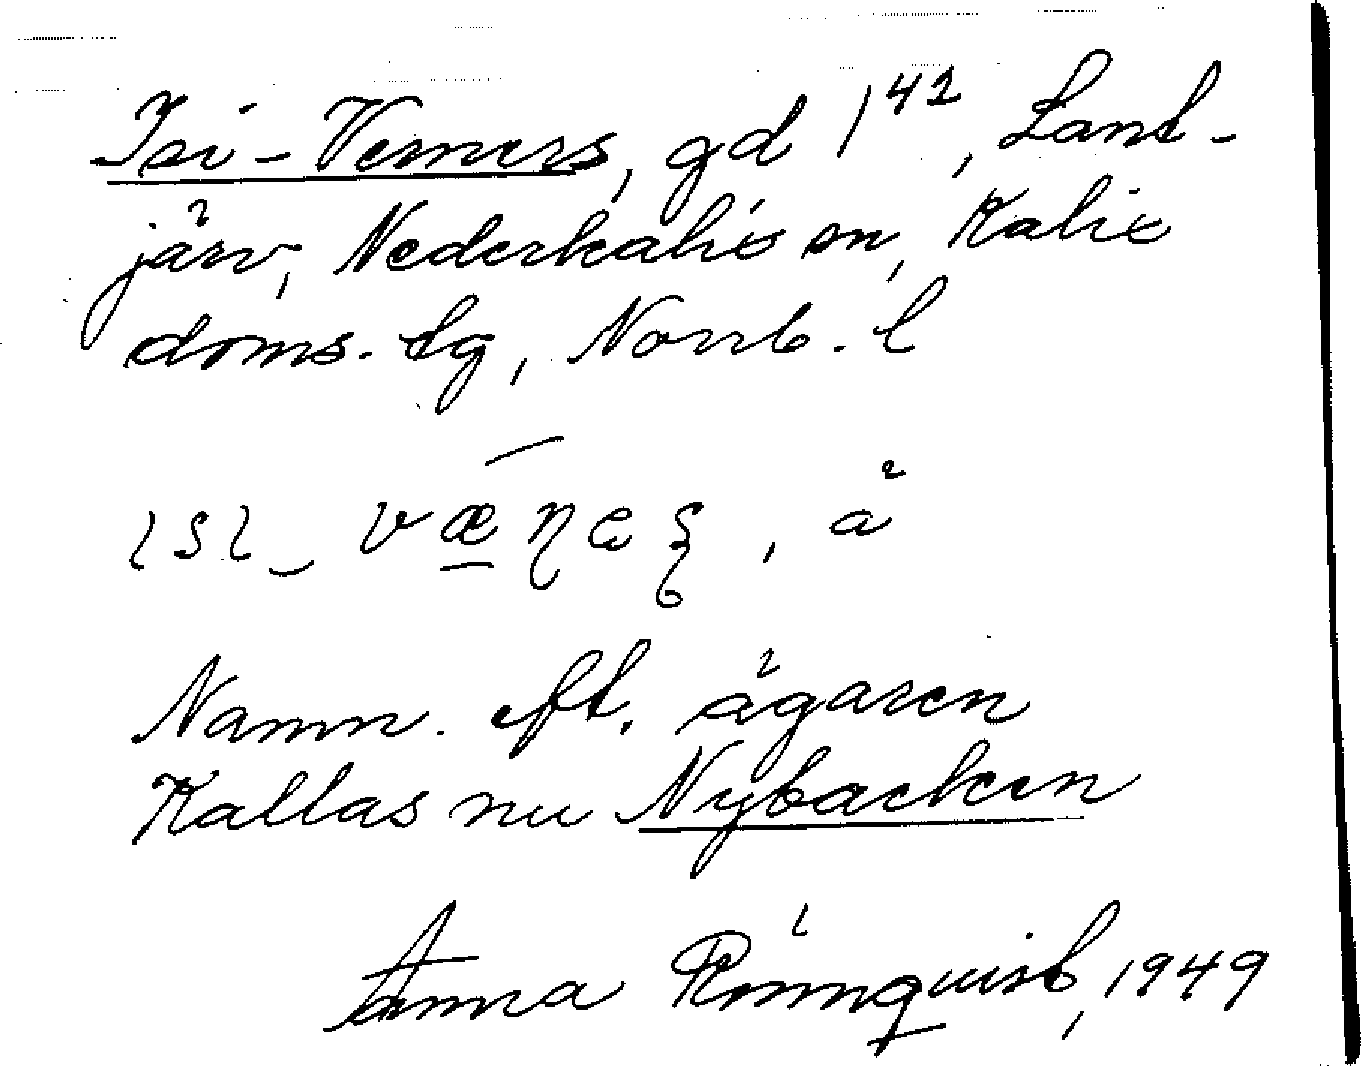 Isi-Verners, gd 1⁴², Lant-
järv, Nederkalix sn, Kalix
doms. tg, Norrb. l
ɩsɩ‿ vǽ̱ɳeʂ, å
Namn. eft. ägaren
Kallas nu Nybacken
Anna Rönnquist, 1949